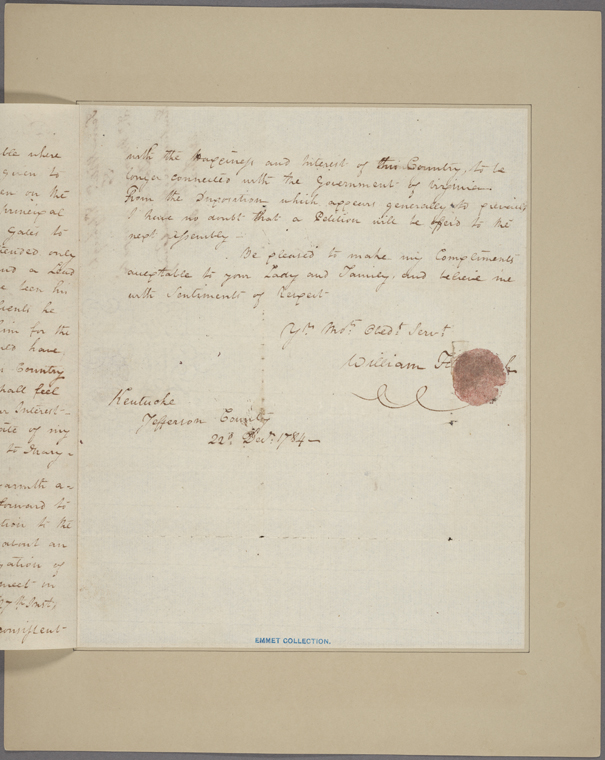 ble where
given to
en on the
principal
Gates to
tended only
and a Lead
e been his
he
him for the
ould have
Country
shall feel
Interest-
of my
to Mary-
warmth a=
forward to
tion to the
about an
ation of
meet in
Inst,
consistent-
with the Happiness and Interest of this Country, to be
longer connected with the Government of Virginia
From the Disposition which appears generally to prevail
I have no doubt that a Petition will be offer'd to the
next Assembly-
Be pleased to make my Compliments
acceptable to your Lady and Family, and believe me
with Sentiments of Respect
Yr. Mot. Obedt. Servt
William
Kentucke
Jefferson County
22d. Decr. 1784
EMMET COLLECTION.